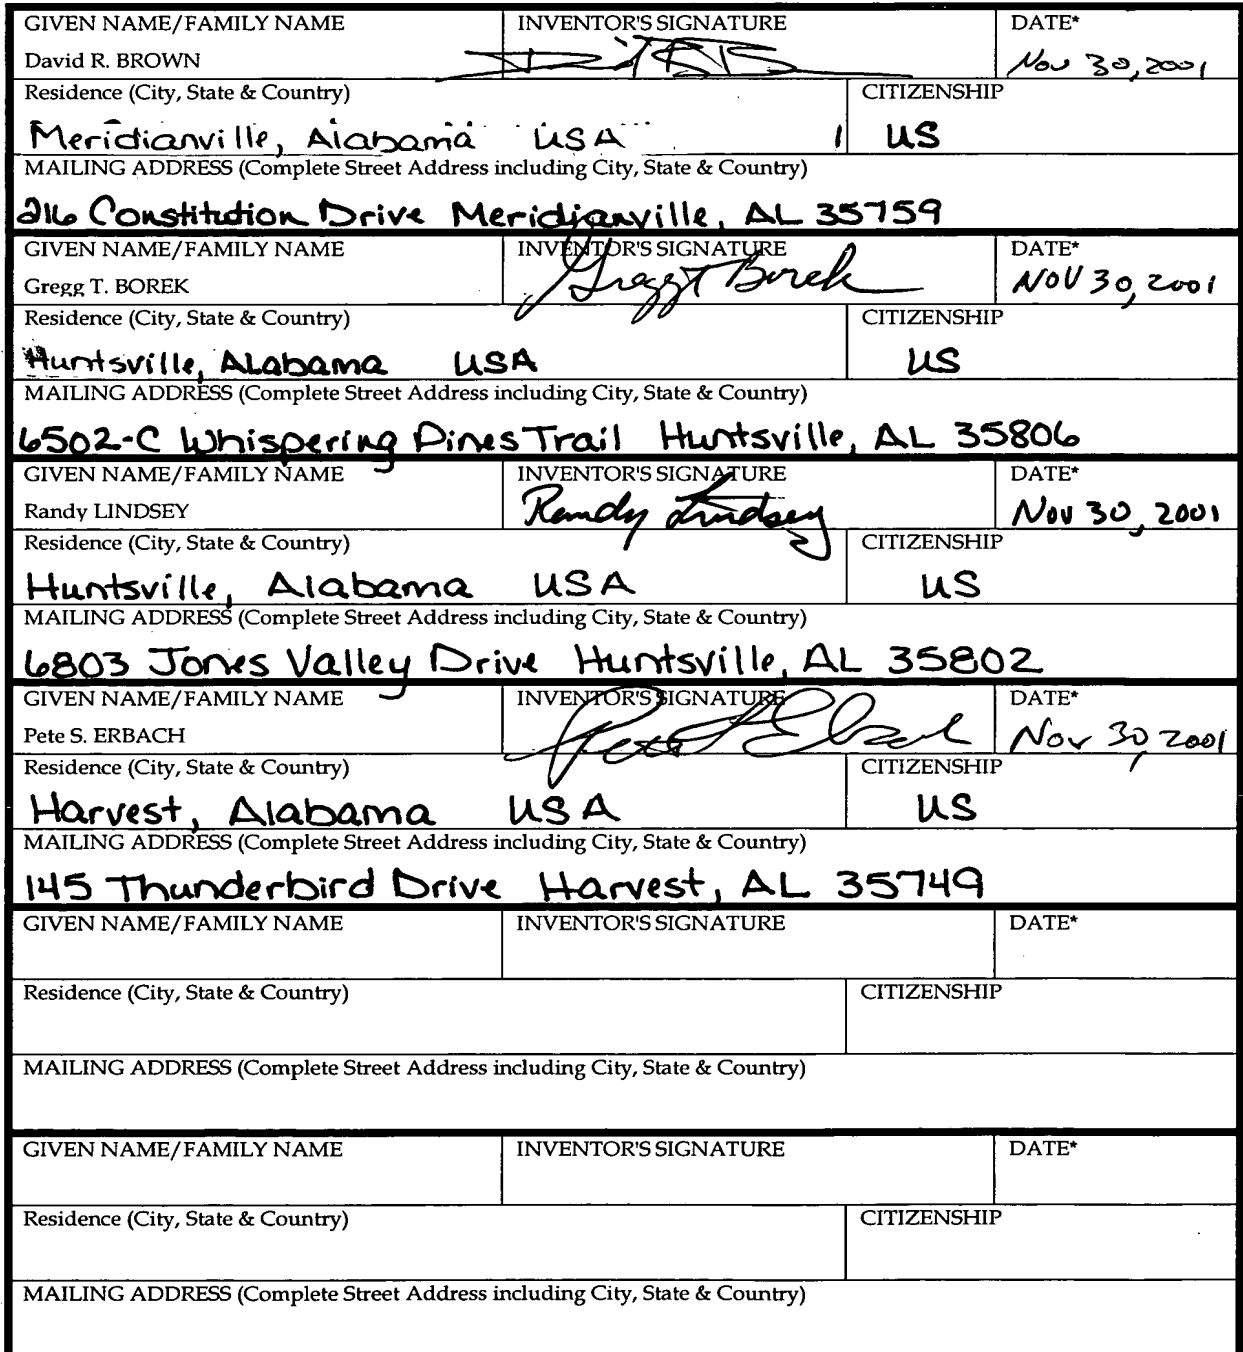 GIVEN NAME/FAMILY NAME INVENTOR'S SIGNATURE DATE*
David R. BROWN Nov 30, 2001
Residence (City, State & Country) CITIZENSHIP
Meridianville, Alabama USA US
MAILING ADDRESS (Complete Street Address including City, State & Country)
216 Constitution Drive Meridianville, AL 35759
GIVEN NAME/FAMILY NAME INVENTOR'S SIGNATURE DATE*
Gregg T. BOREK Gregg T Borek NOV 30, 2001
Residence (City, State & Country) CITIZENSHIP
Huntsville, Alabama USA US
MAILING ADDRESS (Complete Street Address including City, State & Country)
6502-C Whispering Pines Trail Huntsville, AL 35806
GIVEN NAME/FAMILY NAME INVENTOR'S SIGNATURE DATE*
Randy LINDSEY Randy Lindsey Nov 30, 2001
Residence (City, State & Country) CITIZENSHIP
Huntsville, Alabama USA US
MAILING ADDRESS (Complete Street Address including City, State & Country)
6803 Jones Valley Drive Huntsville, AL 35802
GIVEN NAME/FAMILY NAME INVENTOR'S SIGNATURE DATE*
Pete S. ERBACH Pete S Erbach Nov 30, 2001
Residence (City, State & Country) CITIZENSHIP
Harvest, Alabama USA US
MAILING ADDRESS (Complete Street Address including City, State & Country)
145 Thunderbird Drive Harvest, AL 35749
GIVEN NAME/FAMILY NAME INVENTOR'S SIGNATURE DATE*
Residence (City, State & Country) CITIZENSHIP
MAILING ADDRESS (Complete Street Address including City, State & Country)
GIVEN NAME/FAMILY NAME INVENTOR'S SIGNATURE DATE*
Residence (City, State & Country) CITIZENSHIP
MAILING ADDRESS (Complete Street Address including City, State & Country)